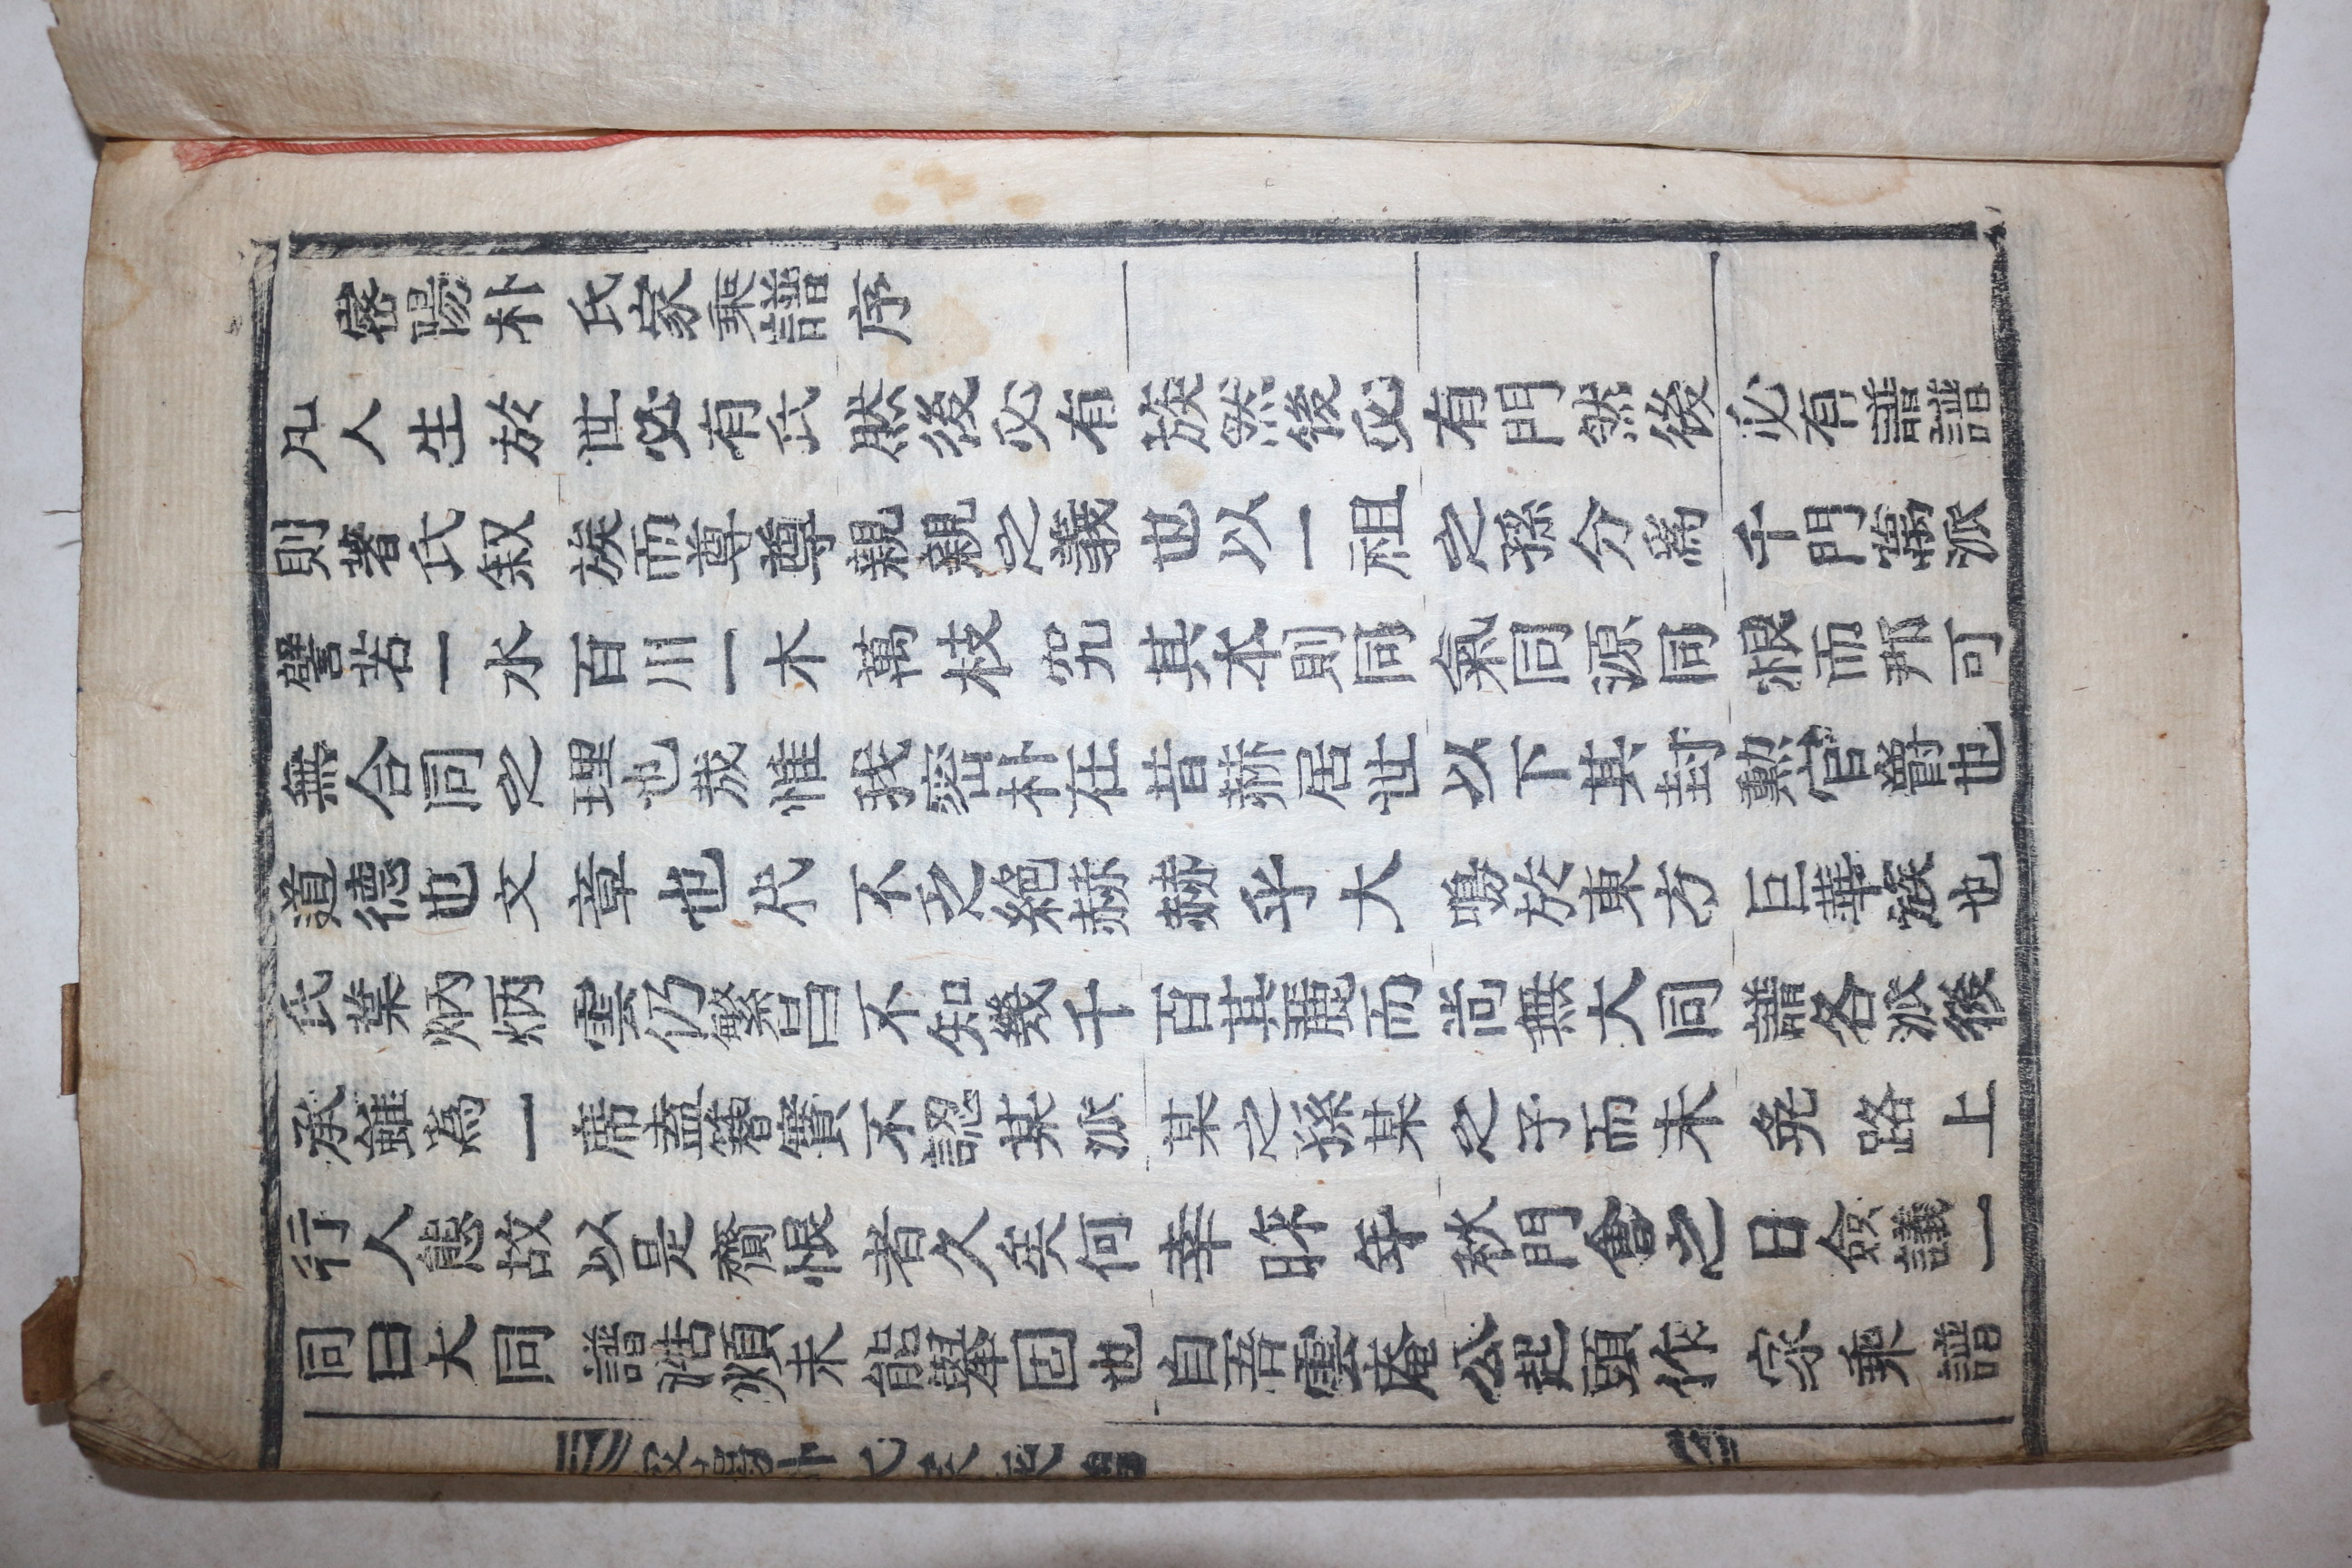 密陽朴氏家乘譜序
凡人生於世必有氏然後必有族然後必有門然後必有譜譜
則著氏叙族而尊尊親親之義也以一祖之孫分爲千門萬派
譬若一水百川一木萬枝究其本則同氣同源同根而那可
無合同之理也哉惟我密朴在昔赫居世以下其封勳官爵也
道德也文章也代不乏絶赫赫乎大鳴於東方巨華族也
氏葉炳炳雲仍繁昌不知幾千百其麗而尚無大同譜各派後
承雖爲一席盍簪實不認某派某之孫某之子而未免路上
行人態故以是齎恨者久矣何幸昨年秋門會之日僉議一
同曰大同譜浩煩未能擧因也自吾雲庵公起頭作家乘譜
密陽朴氏家乘譜